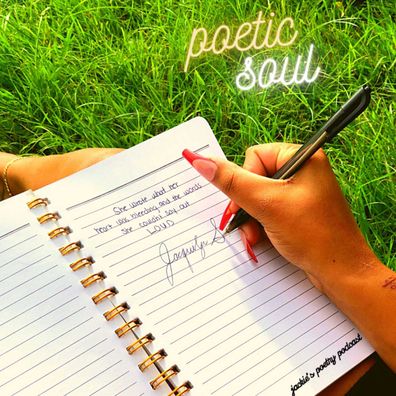 poetic
soul
She wrote what her
heart was bleeding and the words
she couldn't say out
LOUD
Jaquelyn S
jackie's poetry podcast